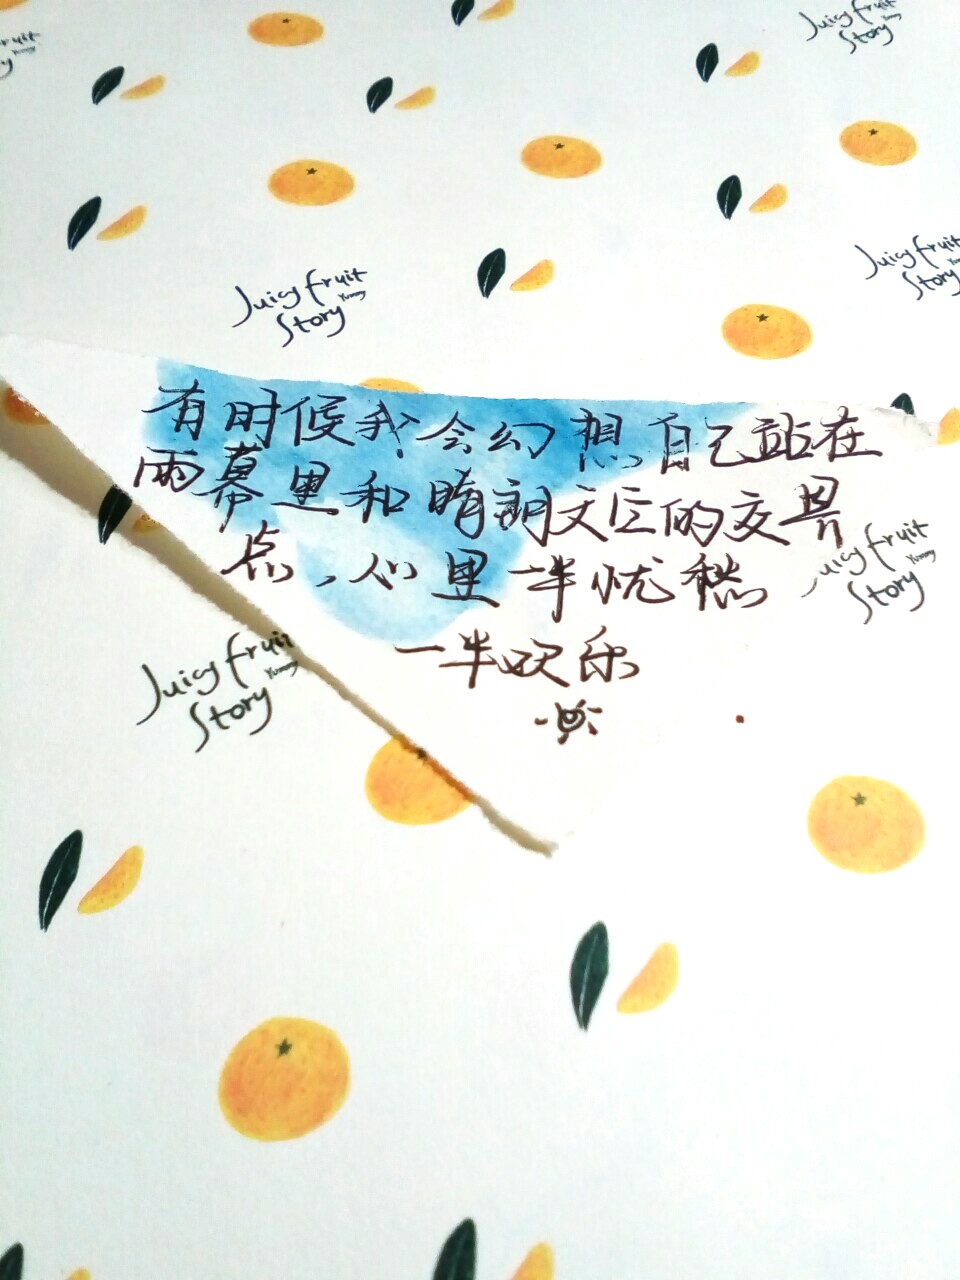 Juicy fruit
Yummy
Story
Juicy fruit
Yummy
Story
Juicy fruit
Yummy
Story
有时候我会幻想自己站在
雨幕里和晴朗文区的交界
点，心里一半忧愁
一半欢乐
Juicy fruit
Yummy
Story
Juicy fruit
Yummy
Story